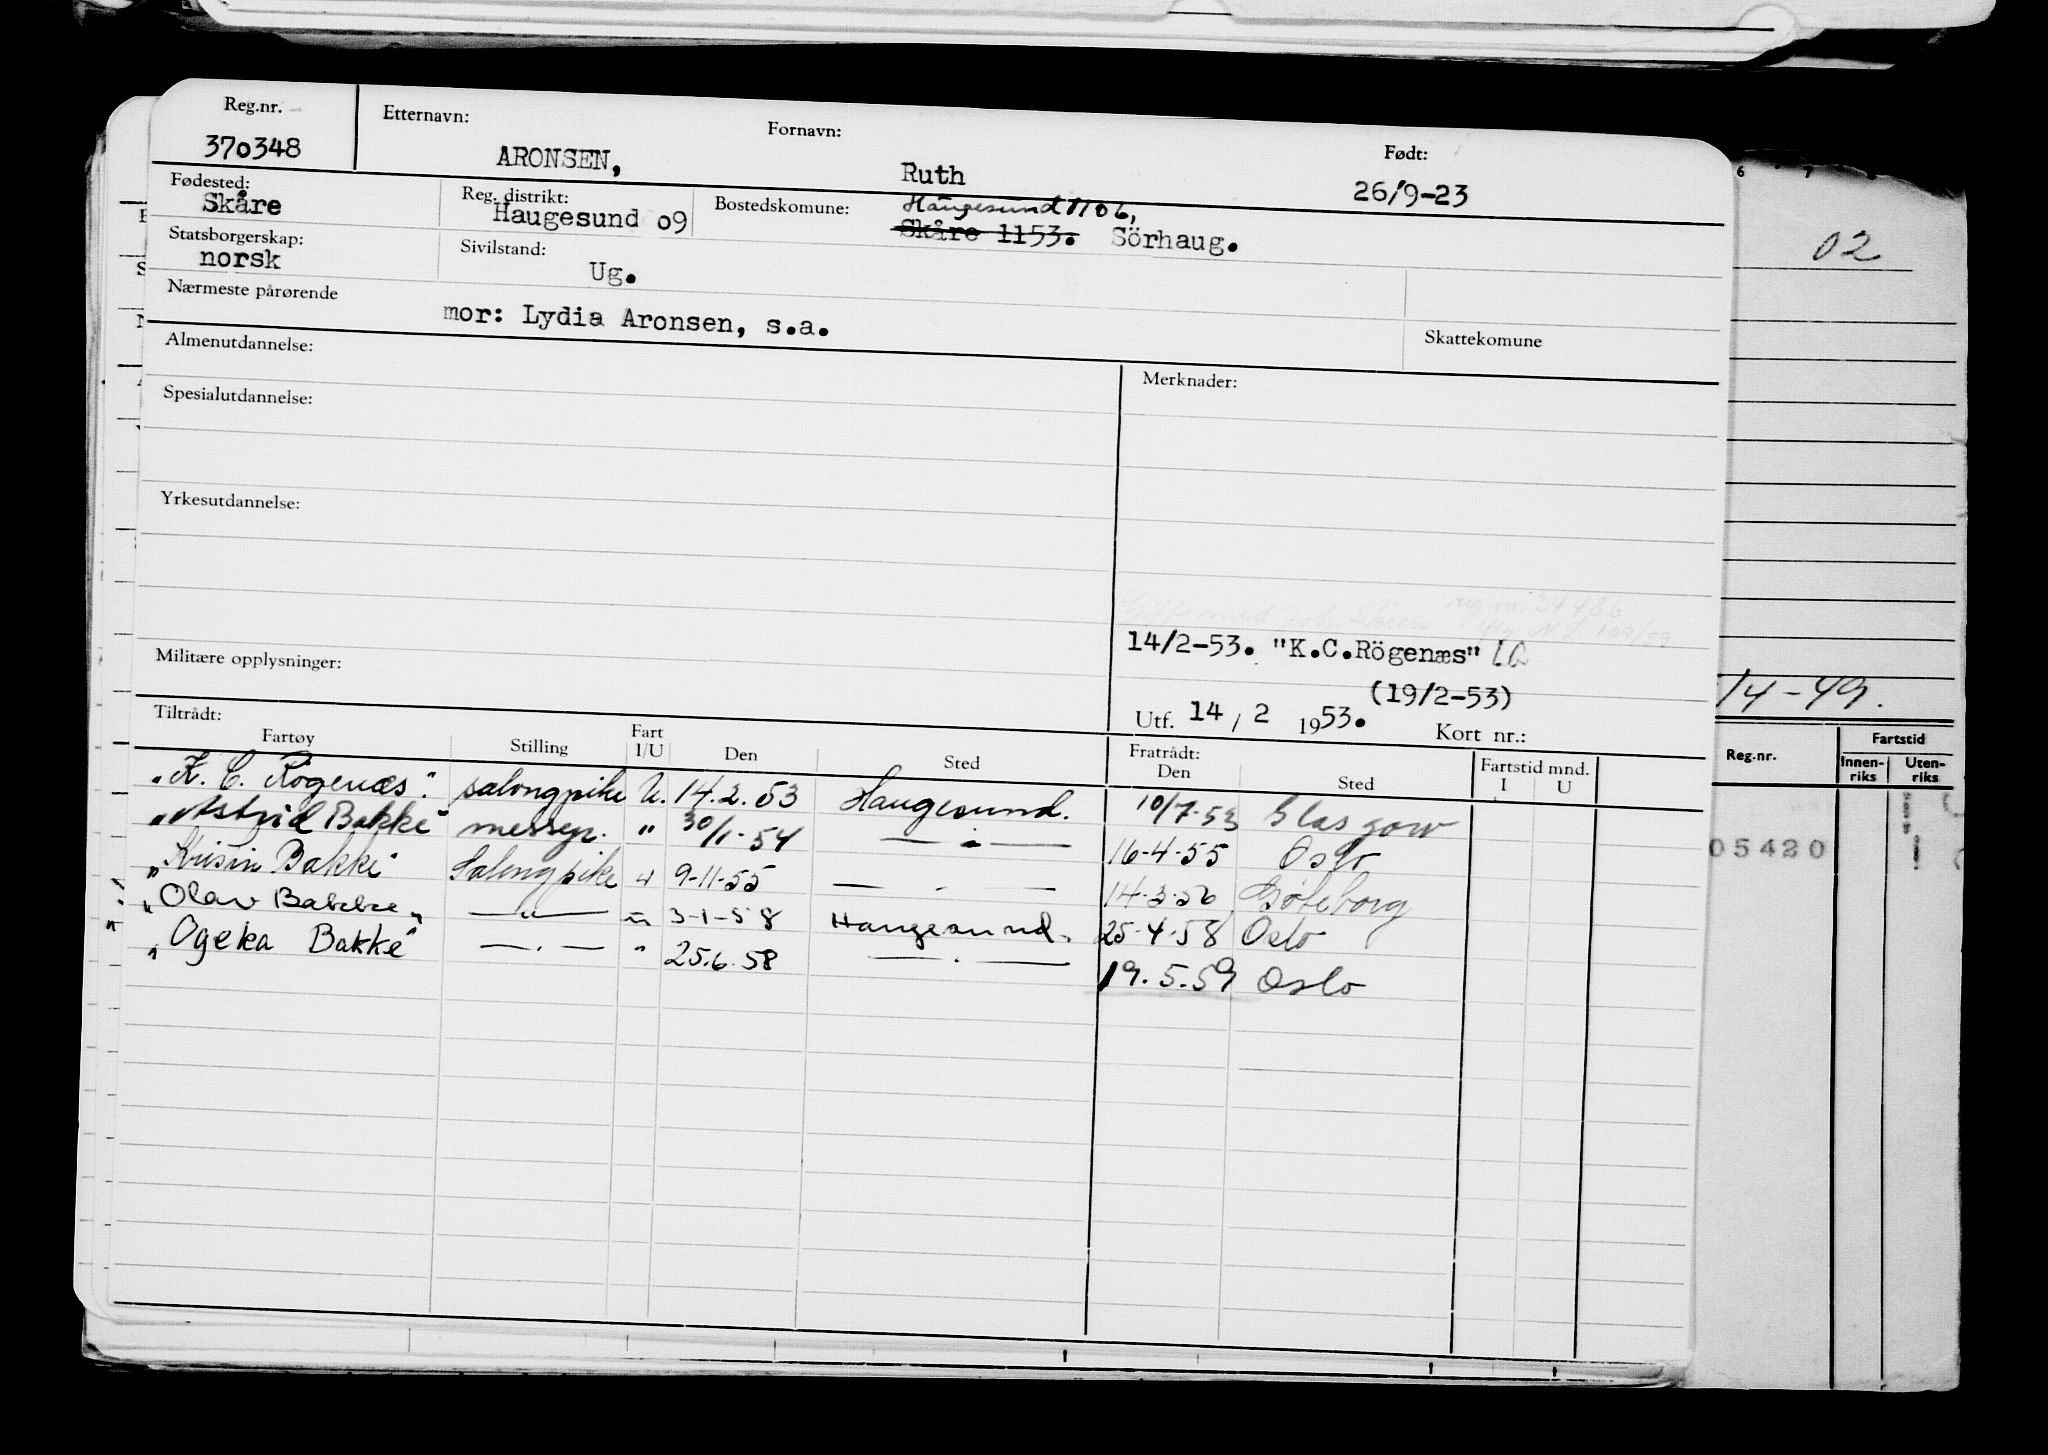 Reg.nr.
370348
Etternavn:
ARONSEN,
Fornavn:
Ruth
Født:
26/9-23
Fødested:
Skåre
Reg. distrikt:
Haugesund 09
Bostedskomune:
Haugesund 1106,
Skåre 1153. Sörhaug.
Statsborgerskap:
norsk
Sivilstand:
Ug.
Nærmeste pårørende
mor: Lydia Aronsen, s.a.
Skattekomune
Almenutdannelse:
Merknader:
Spesialutdannelse:
Yrkesutdannelse:
Militære opplysninger:
14/2-53. "K.C.Rögenæs"
(19/2-53)
Utf. 14 / 2 1953. Kort nr.:
Tiltrådt:
Fartøy Stilling Fart I/U Den Sted Fratrådt: Den Sted Fartstid mnd. I U
"K. C. Rogenæs". salongpike U. 14.2.53 Haugesund. 10/7-53 Glasgow
"Astrid Bakke" messep. " 30/1-54 — " — 16-4-55 Oslo
"Krisin Bakke" Salongpike " 9-11-55 — " — 14-3-56 Gøteborg
"Olav Bakke" — " — " 3-1-58 Haugesund. 25-4-58 Oslo
"Ogeka Bakke" — " — " 25.6.58 — " — 19.5.59 Oslo
02
/4-49.
Reg.nr.
Fartstid
Innen-riks Uten-riks
05420